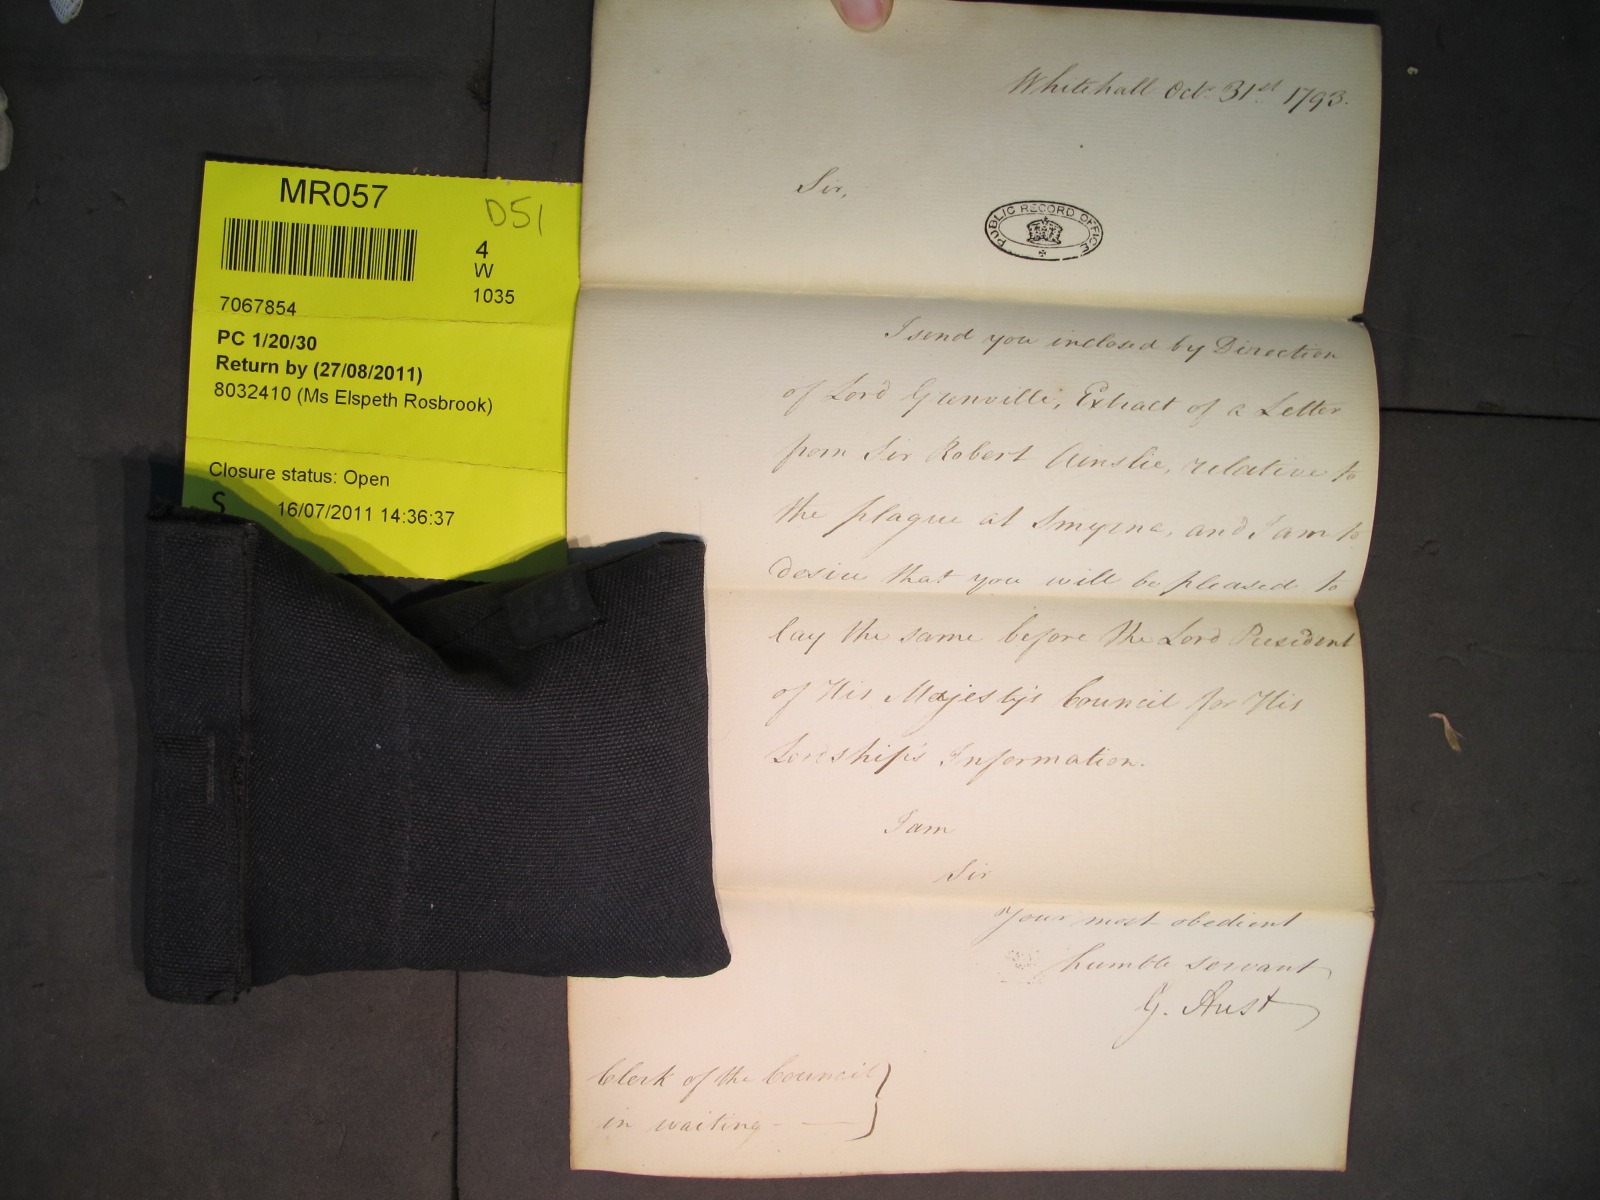 MR057
D51
4
W
1035
7067854
PC 1/20/30
Return by (27/08/2011)
8032410 (Ms Elspeth Rosbrook)
Closure status: Open
S
16/07/2011 14:36:37
Whitehall Octr. 31st 1793.
Sir,
PUBLIC RECORD OFFICE
I send you inclosed by Direction
of Lord Grenville, Extract of a Letter
from Sir Robert Ainslie, relative to
the plague at Smyrna, and I am to
desire that you will be pleased to
lay the same before the Lord President
of His Majesty's Council for His
Lordship's Information.
I am
Sir
Your most obedient
humble servant
G. Aust
Clerk of the Council
in waiting